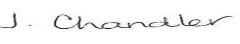 J. Chandler